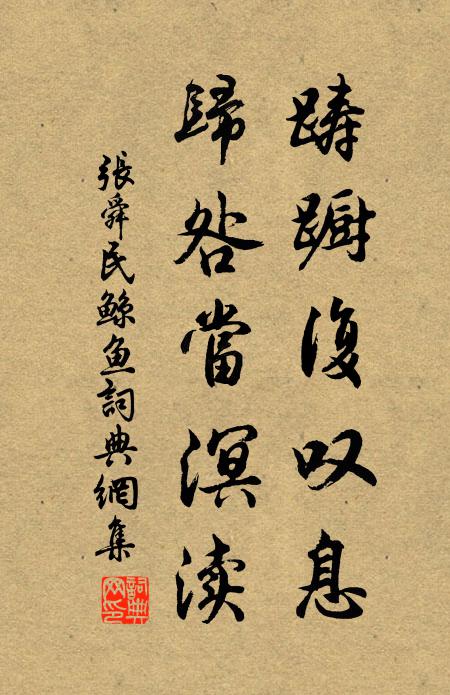 踌蹰復叹息
歸咎當溟渎
張舜民鲸鱼詞典網集
詞典网印